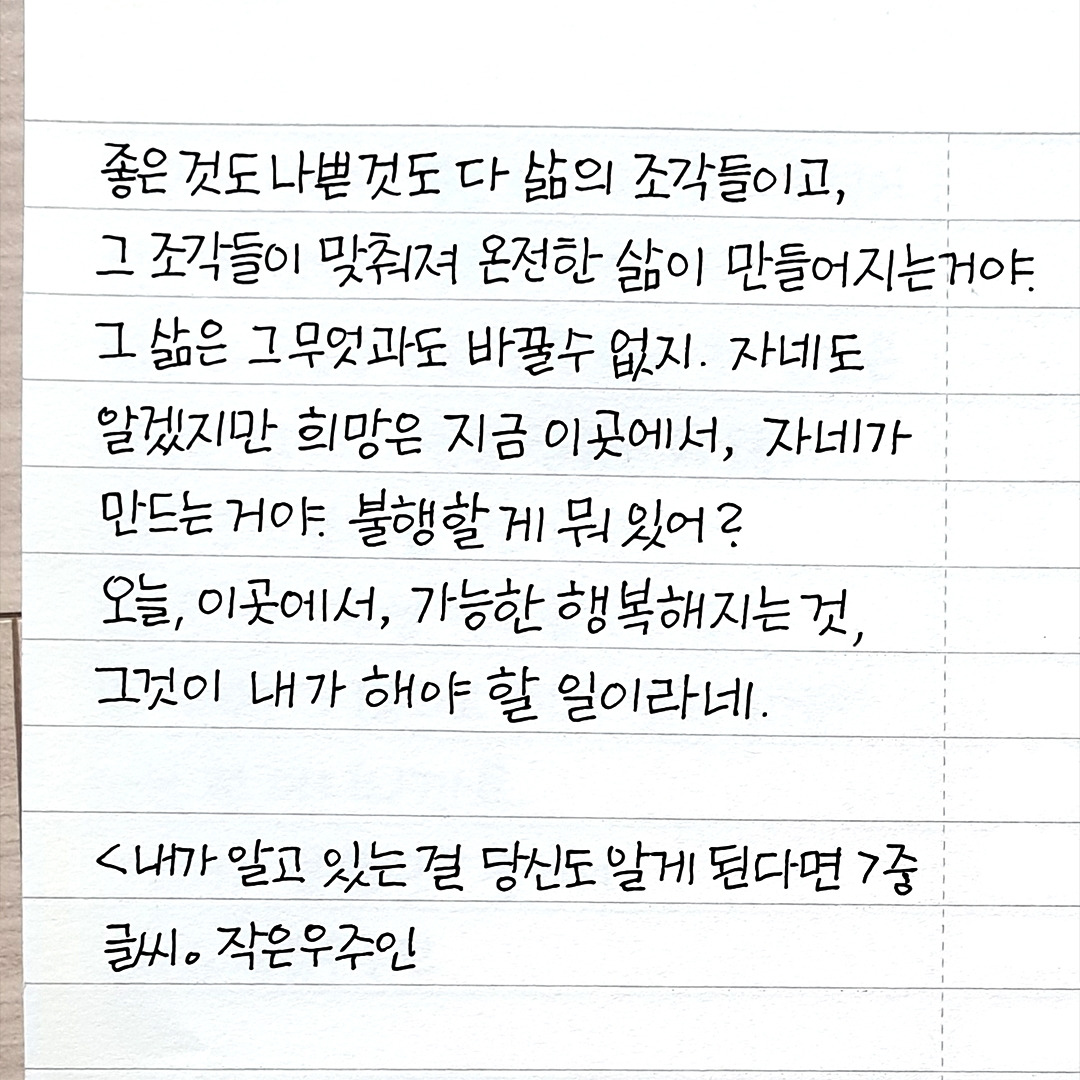 좋은 것도 나쁜 것도 다 삶의 조각들이고,
그 조각들이 맞춰져 온전한 삶이 만들어지는거야.
그 삶은 그 무엇과도 바꿀 수 없지. 자네도
알겠지만 희망은 지금 이곳에서, 자네가
만드는 거야. 불행할 게 뭐 있어?
오늘, 이곳에서, 가능한 행복해지는 것,
그것이 내가 해야 할 일이라네.
<내가 알고 있는 걸 당신도 알게 된다면>중
글씨。작은우주인